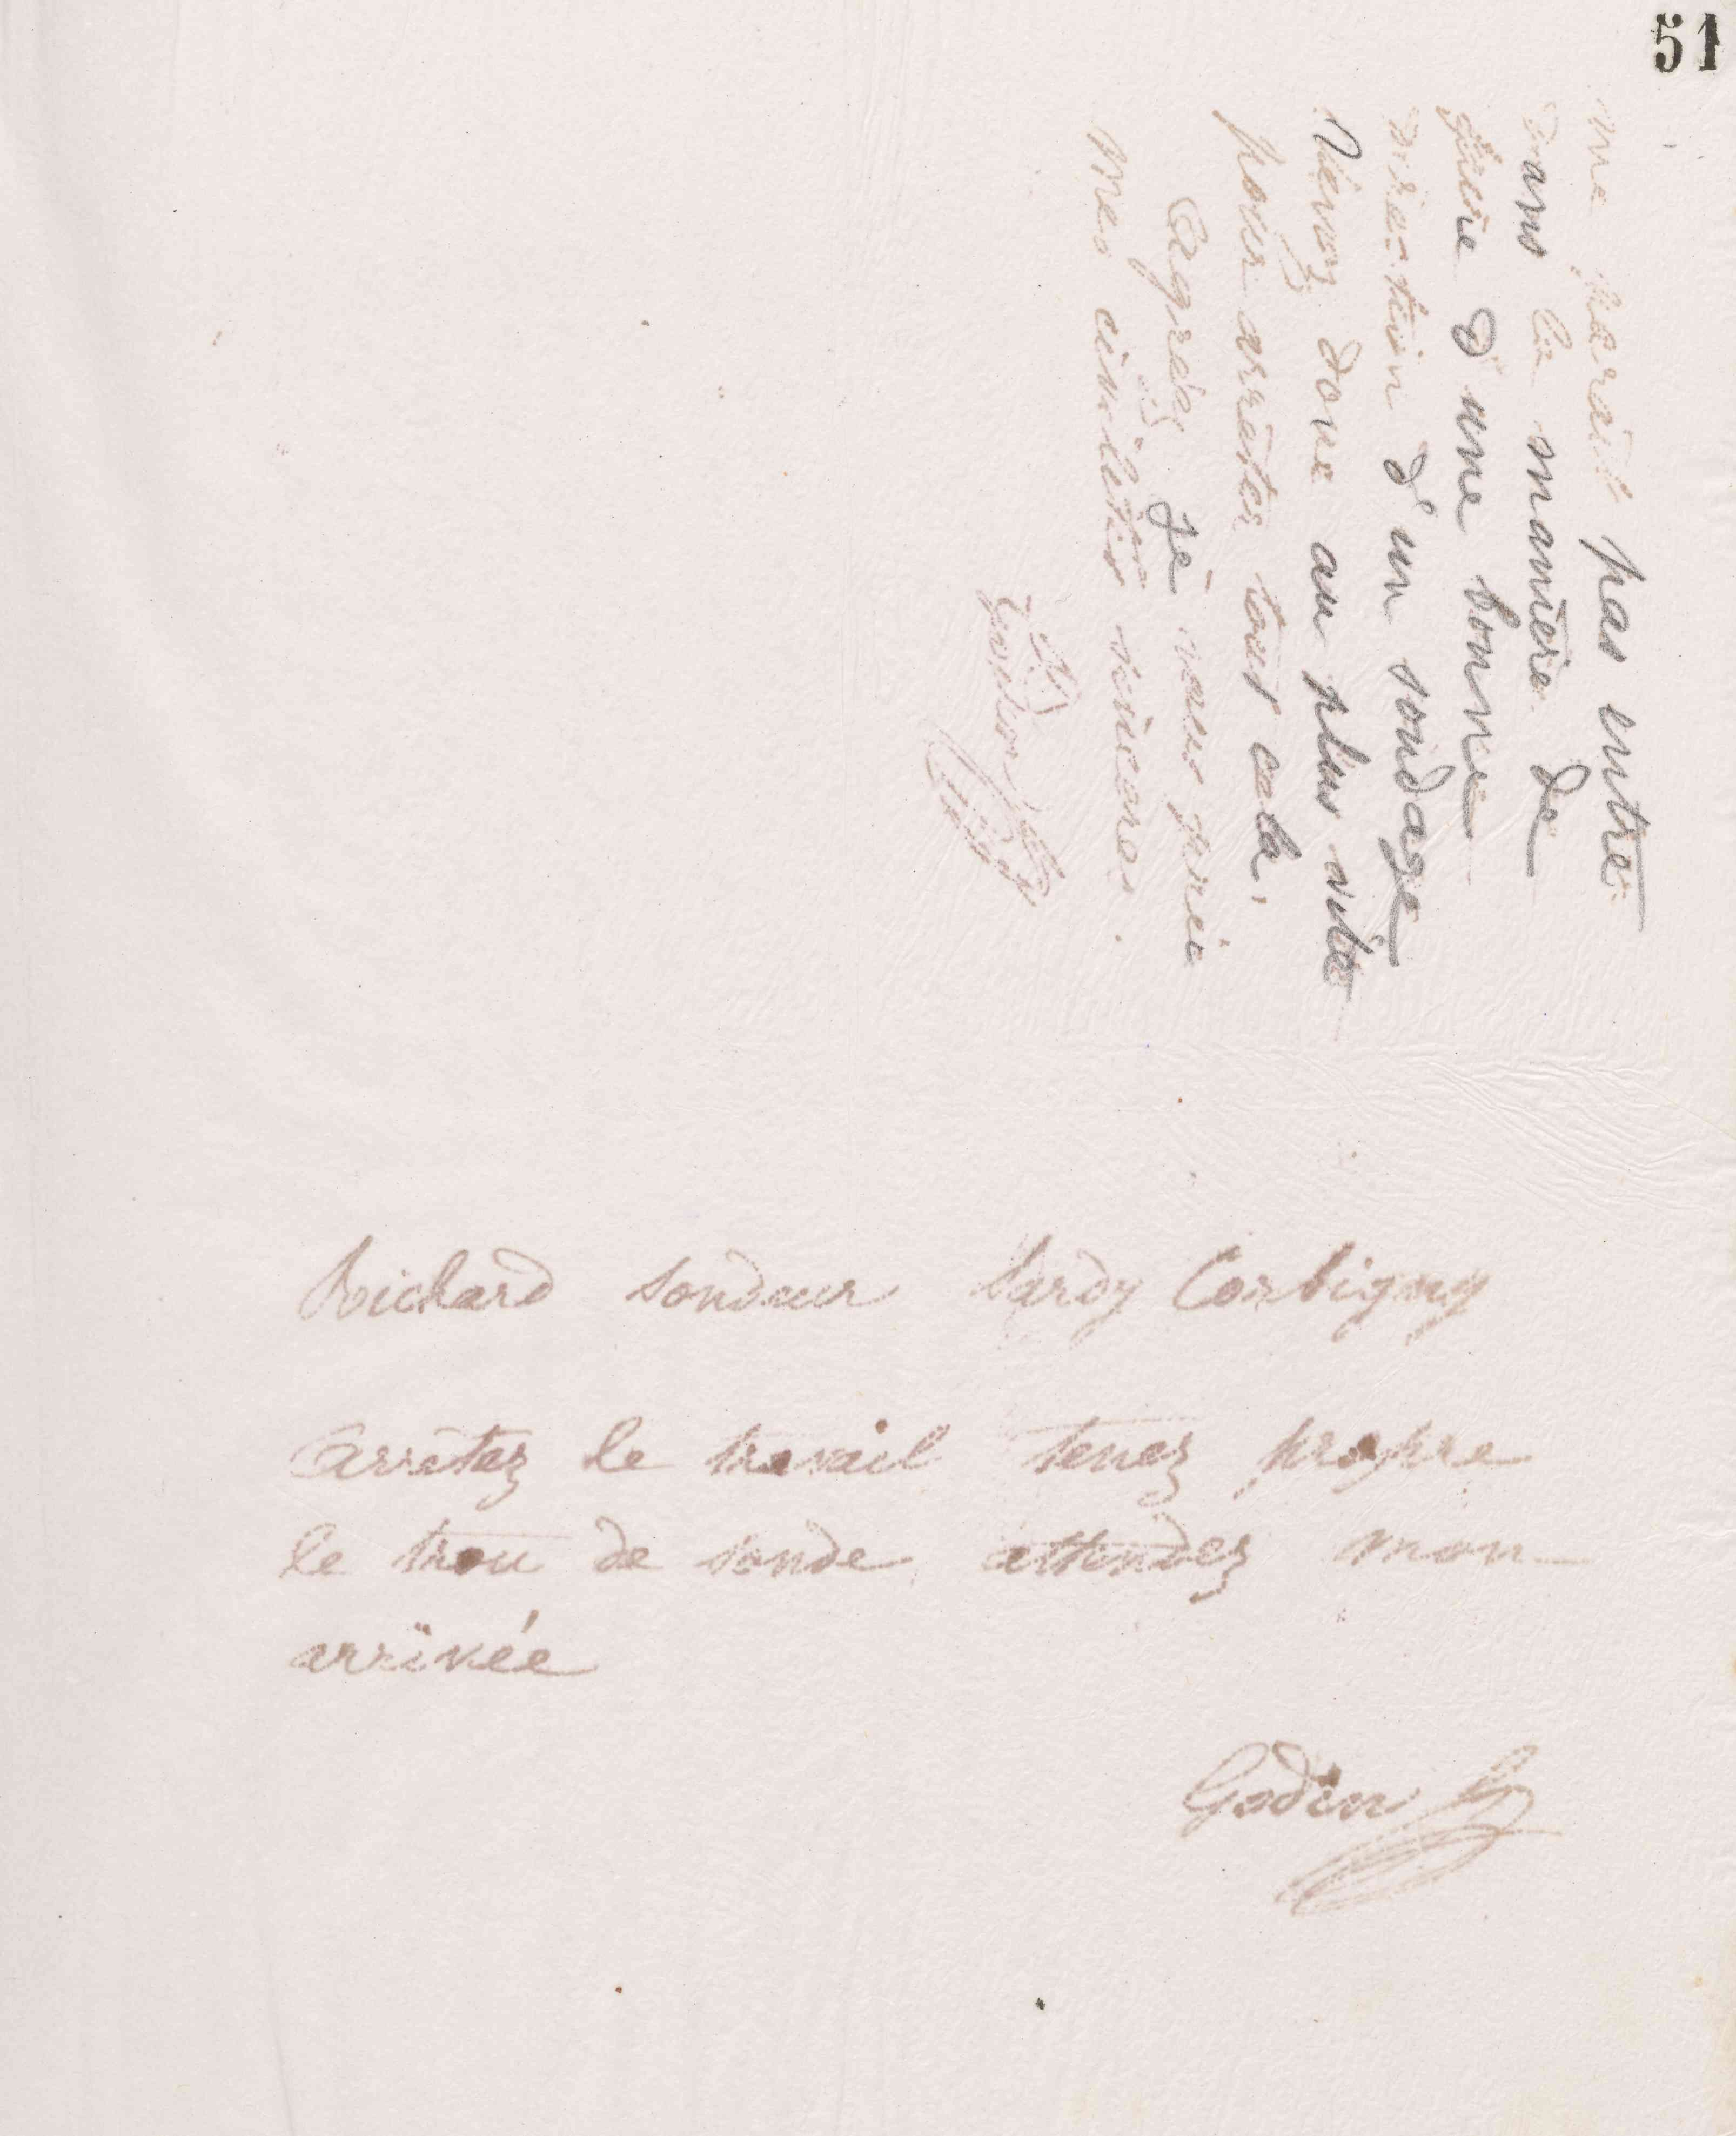 51
me paraît pas entrer
dans la manière de
faire d'une bonne
direction d'un sondage
Venez donc au plus vite
pour arrêter tout cela.
Agréez je vous prie
mes civilités sincères.
Godin
Richard sondeur Sardy Corbigny
Arrêtez le travail tenez propre
le trou de sonde attendez mon
arrivée
Godin